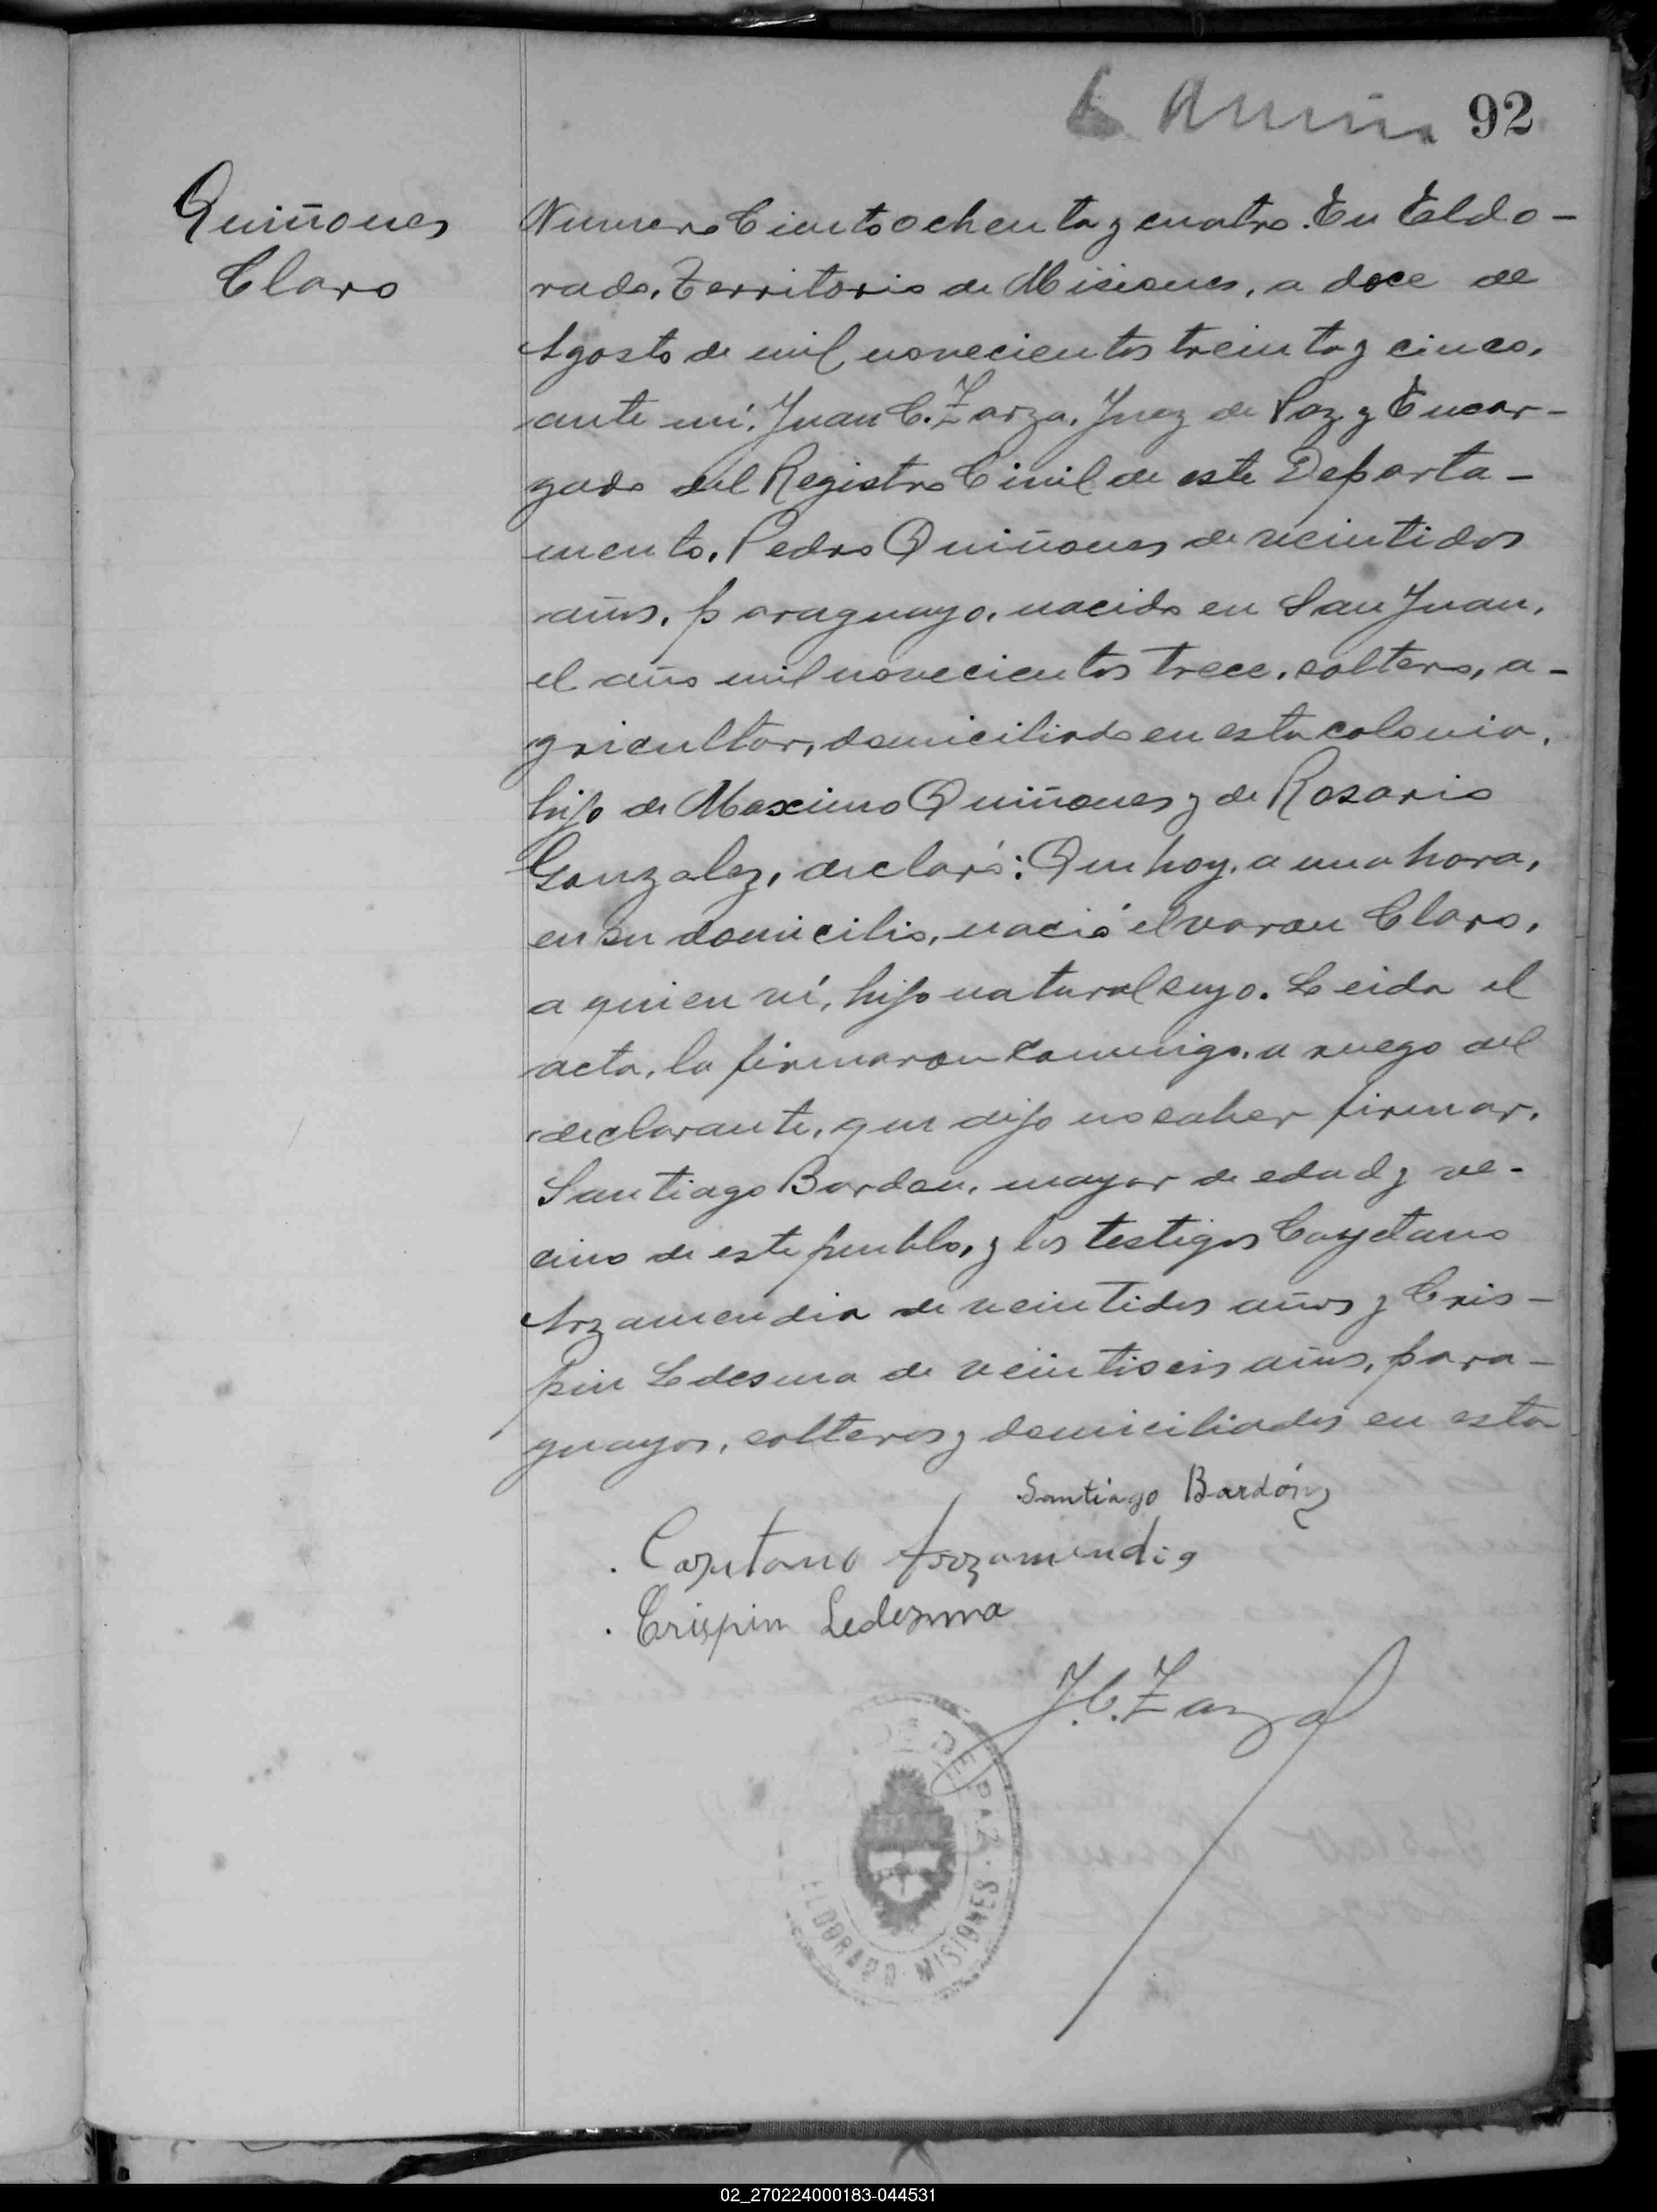 92
Quiñones
Claro
Numero Ciento ochenta y cuatro. En Eldo-
rado, Territorio de Misiones, a doce de
Agosto de mil novecientos treinta y cinco,
ante mí, Juan C. Zarza, Juez de Paz y Encar-
gado del Registro Civil de este Departa-
mento, Pedro Quiñones de veintidos
años, paraguayo, nacido en San Juan,
el año mil novecientos trece, soltero, a-
gricultor, domiciliado en esta colonia,
hijo de Maximo Quiñones y de Rosario
Gonzalez, declaró: Que hoy, a una hora,
en su domicilio, nació el varon Claro,
a quien ví, hijo natural suyo. Leida el
acta, la firmaron conmigo, a ruego del
declarante, que dijo no saber firmar,
Santiago Bardon, mayor de edad y ve-
cino de este pueblo, y los testigos Cayetano
Arzamendia de veintidos años y Cris-
pin Ledesma de veintiseis años, para-
guayos, solteros y domiciliados en esta
Santiago Bardón
Cayetano Arzamendia
Crispin Ledezma
J. C. Zarza
DE PAZ
ELDORADO MISIONES
02_270224000183-044531